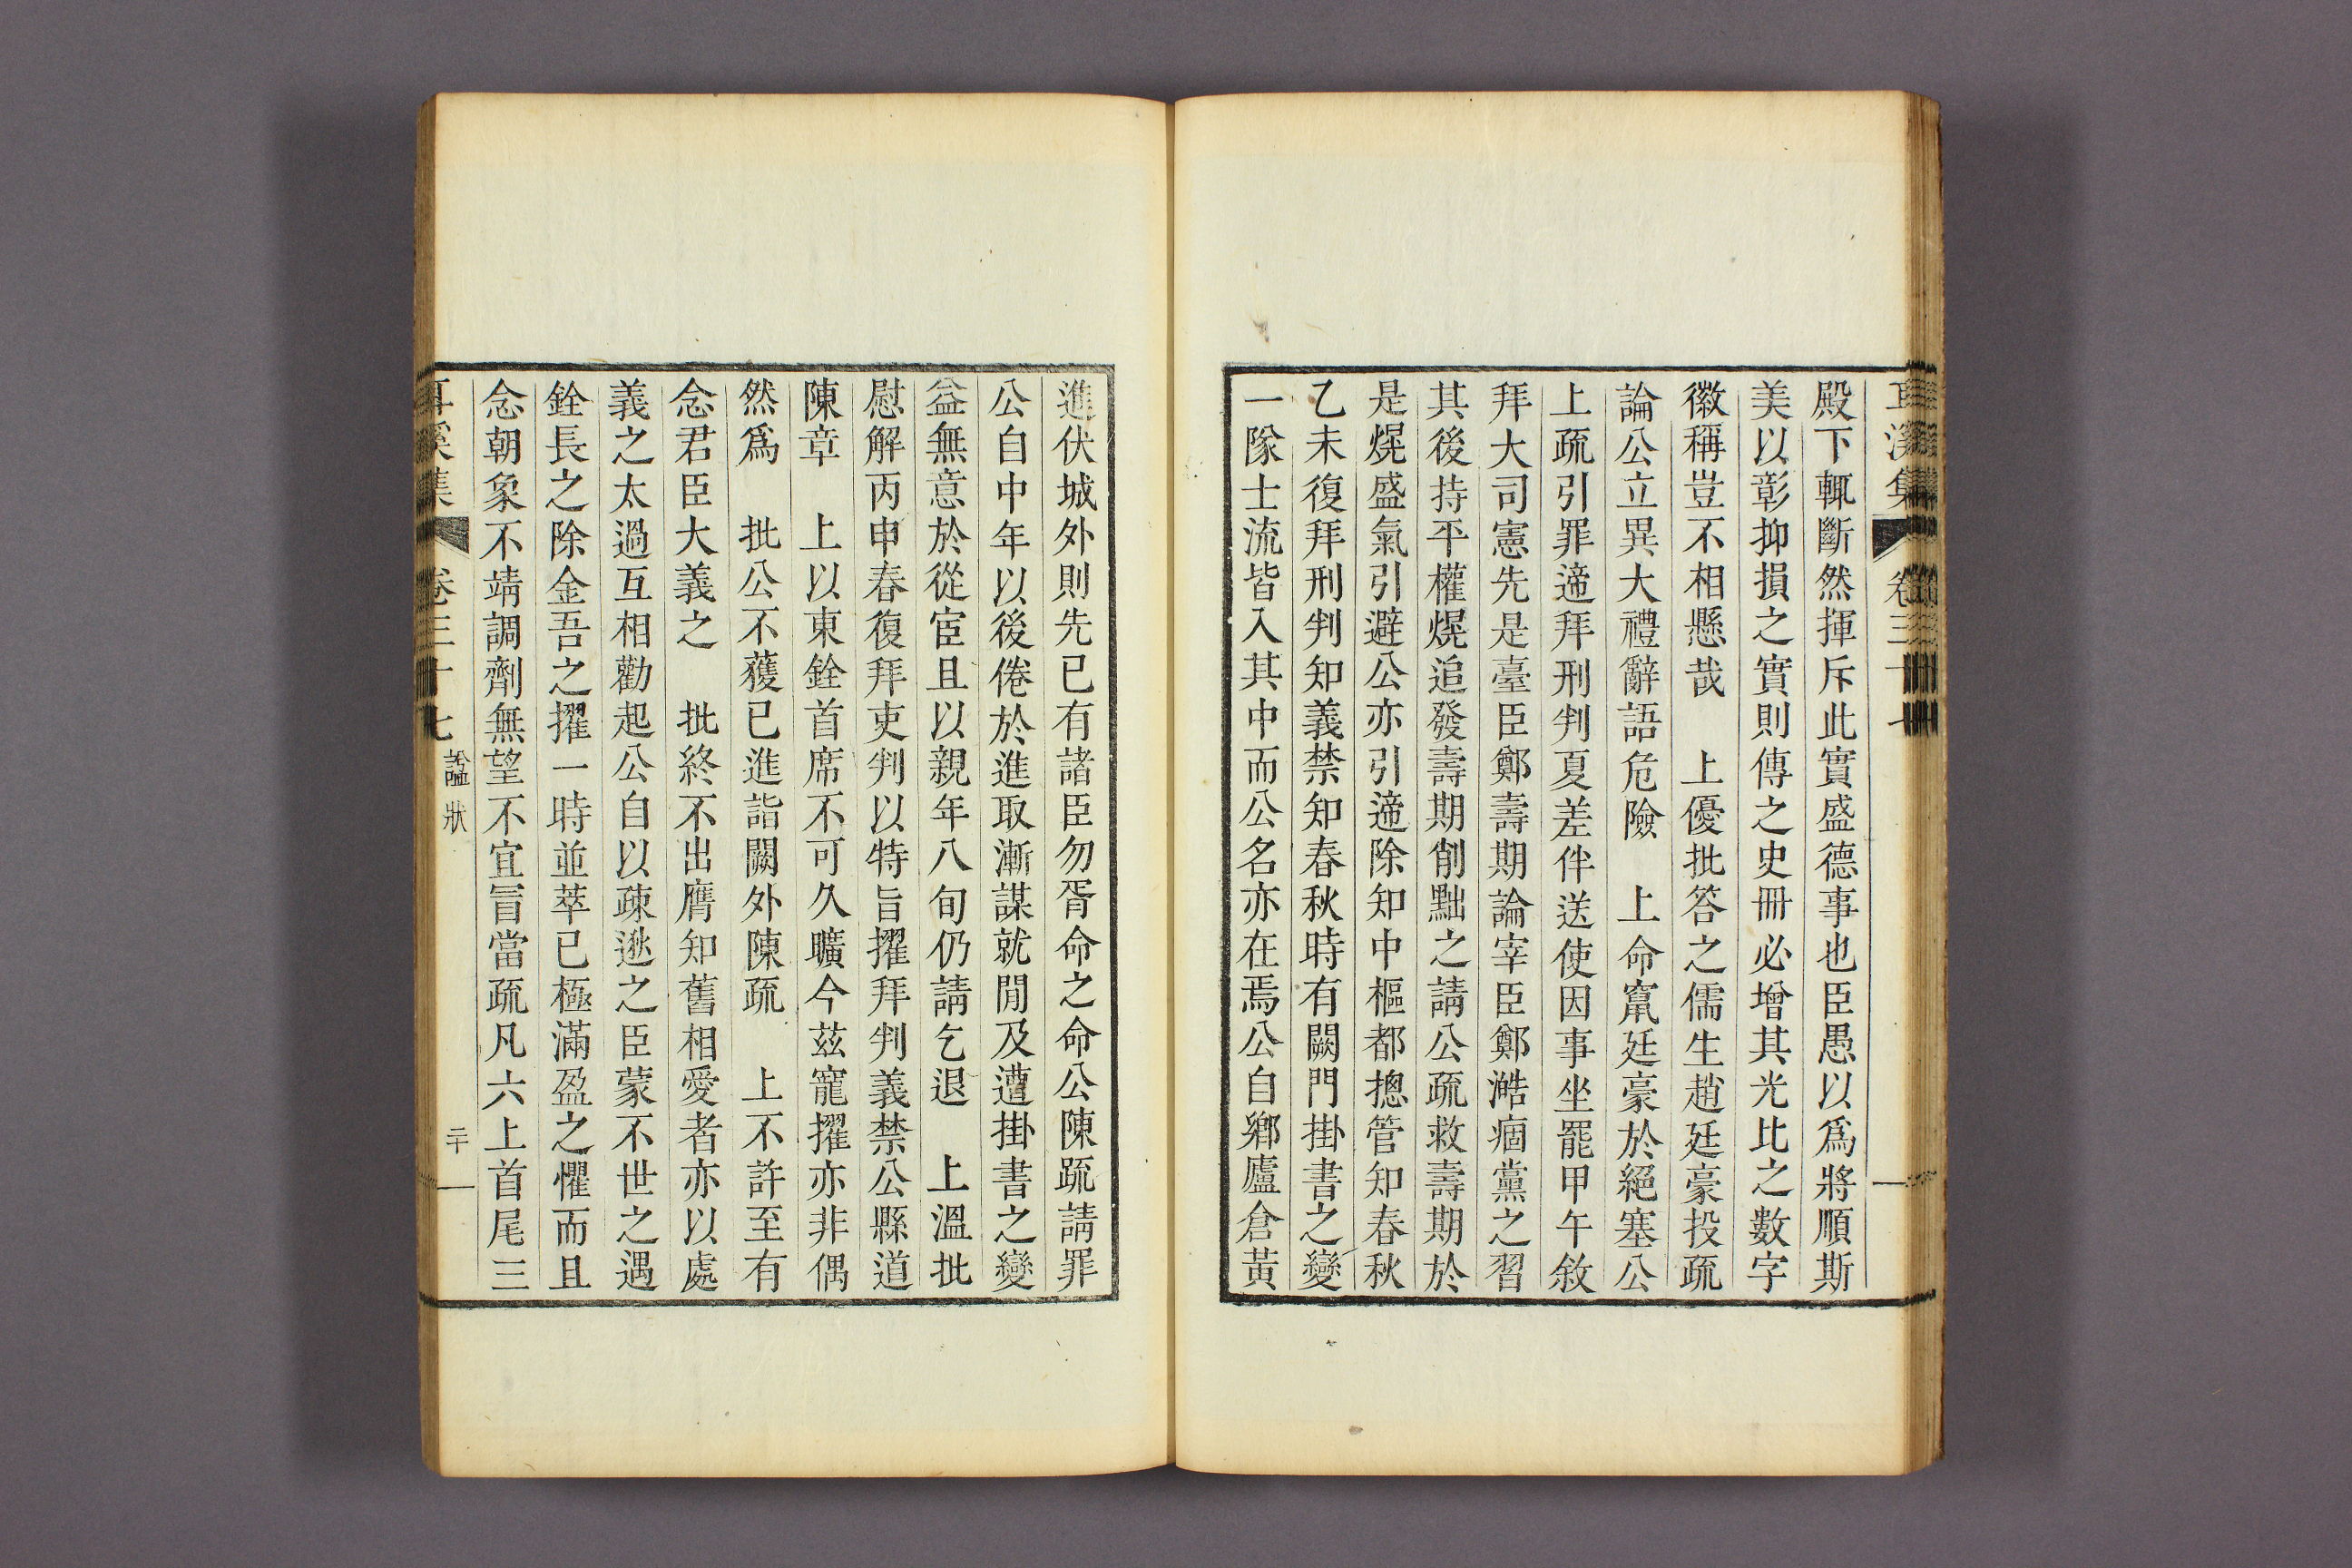 殿下輒斷然揮斥此實盛德事也臣愚以爲將順斯
美以彰抑損之實則傳之史冊必增其光比之數字
徽稱豈不相懸哉　上優批答之儒生趙廷豪投疏
論公立異大禮辭語危險　上命竄廷豪於絕塞公
上疏引罪遆拜刑判夏差伴送使因事坐罷甲午敘
拜大司憲先是臺臣鄭壽期論宰臣鄭澔痼黨之習
其後持平權熀追發壽期削黜之請公疏救壽期於
是熀盛氣引避公亦引遆除知中樞都摠管知春秋
乙未復拜刑判知義禁知春秋時有闕門掛書之變
一隊士流皆入其中而公名亦在焉公自鄕廬倉黃
進伏城外則先已有諸臣勿胥命之命公陳疏請罪
公自中年以後倦於進取漸謀就閒及遭掛書之變
益無意於從宦且以親年八旬仍請乞退　上溫批
慰解丙申春復拜吏判以特旨擢拜判義禁公縣道
陳章　上以東銓首席不可久曠今茲寵擢亦非偶
然爲　批公不獲已進詣闕外陳疏　上不許至有
念君臣大義之　批終不出膺知舊相愛者亦以處
義之太過互相勸起公自以疎逖之臣蒙不世之遇
銓長之除金吾之擢一時並萃已極滿盈之懼而且
念朝象不靖調劑無望不宜冒當疏凡六上首尾三
耳溪集　卷三十七　諡狀　二十